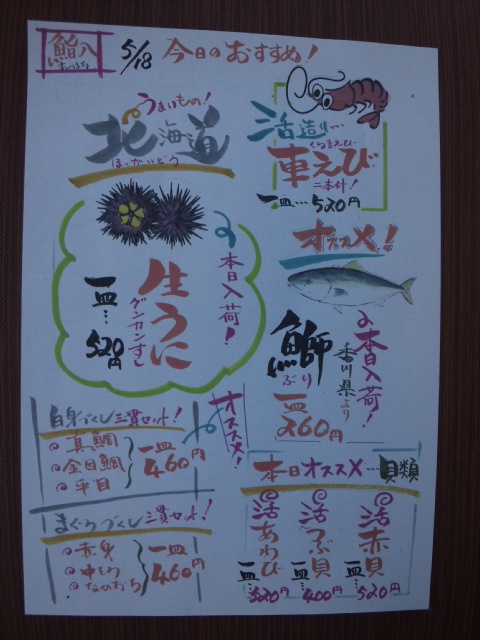 鮨八
すしはち
5/18 今日のおすすめ!
うまいもの!
北海道
ほっかいどう
活造り…
くるまえび
車えび
二本付!
一皿…520円
本日入荷!
生うに
グンカンすし
一皿…520円
オススメ!
本日入荷!
香川県より
鰤
ぶり
一皿260円
オススメ!
白身づくし三貫セット!
真鯛
金目鯛
平目
一皿460円
まぐろづくし三貫セット!
赤身
中とろ
一皿460円
本日オススメ…貝類
活赤貝
一皿…520円
活つぶ貝
一皿…400円
活あわび
一皿…520円